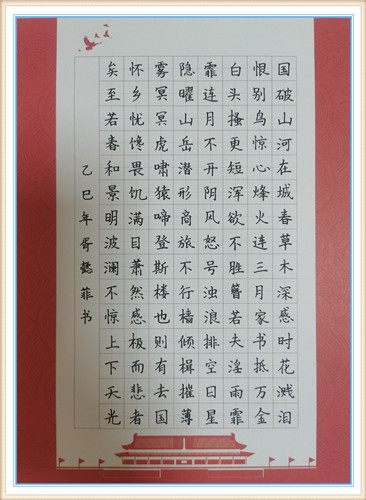 国破山河在城春草木深感时花溅泪
恨别鸟惊心烽火连三月家书抵万金
白头搔更短浑欲不胜簪若夫淫雨霏
霏连月不开阴风怒号浊浪排空日星
隐曜山岳潜形商旅不行樯倾楫摧薄
雾冥冥虎啸猿啼登斯楼也则有去国
怀乡忧馋畏饥满目萧然感极而悲者
矣至若春和景明波澜不惊上下天光
乙巳年胥懿菲书